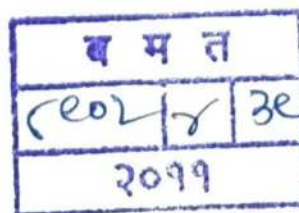 ब म त
८९०२ ४ ३९
२०११